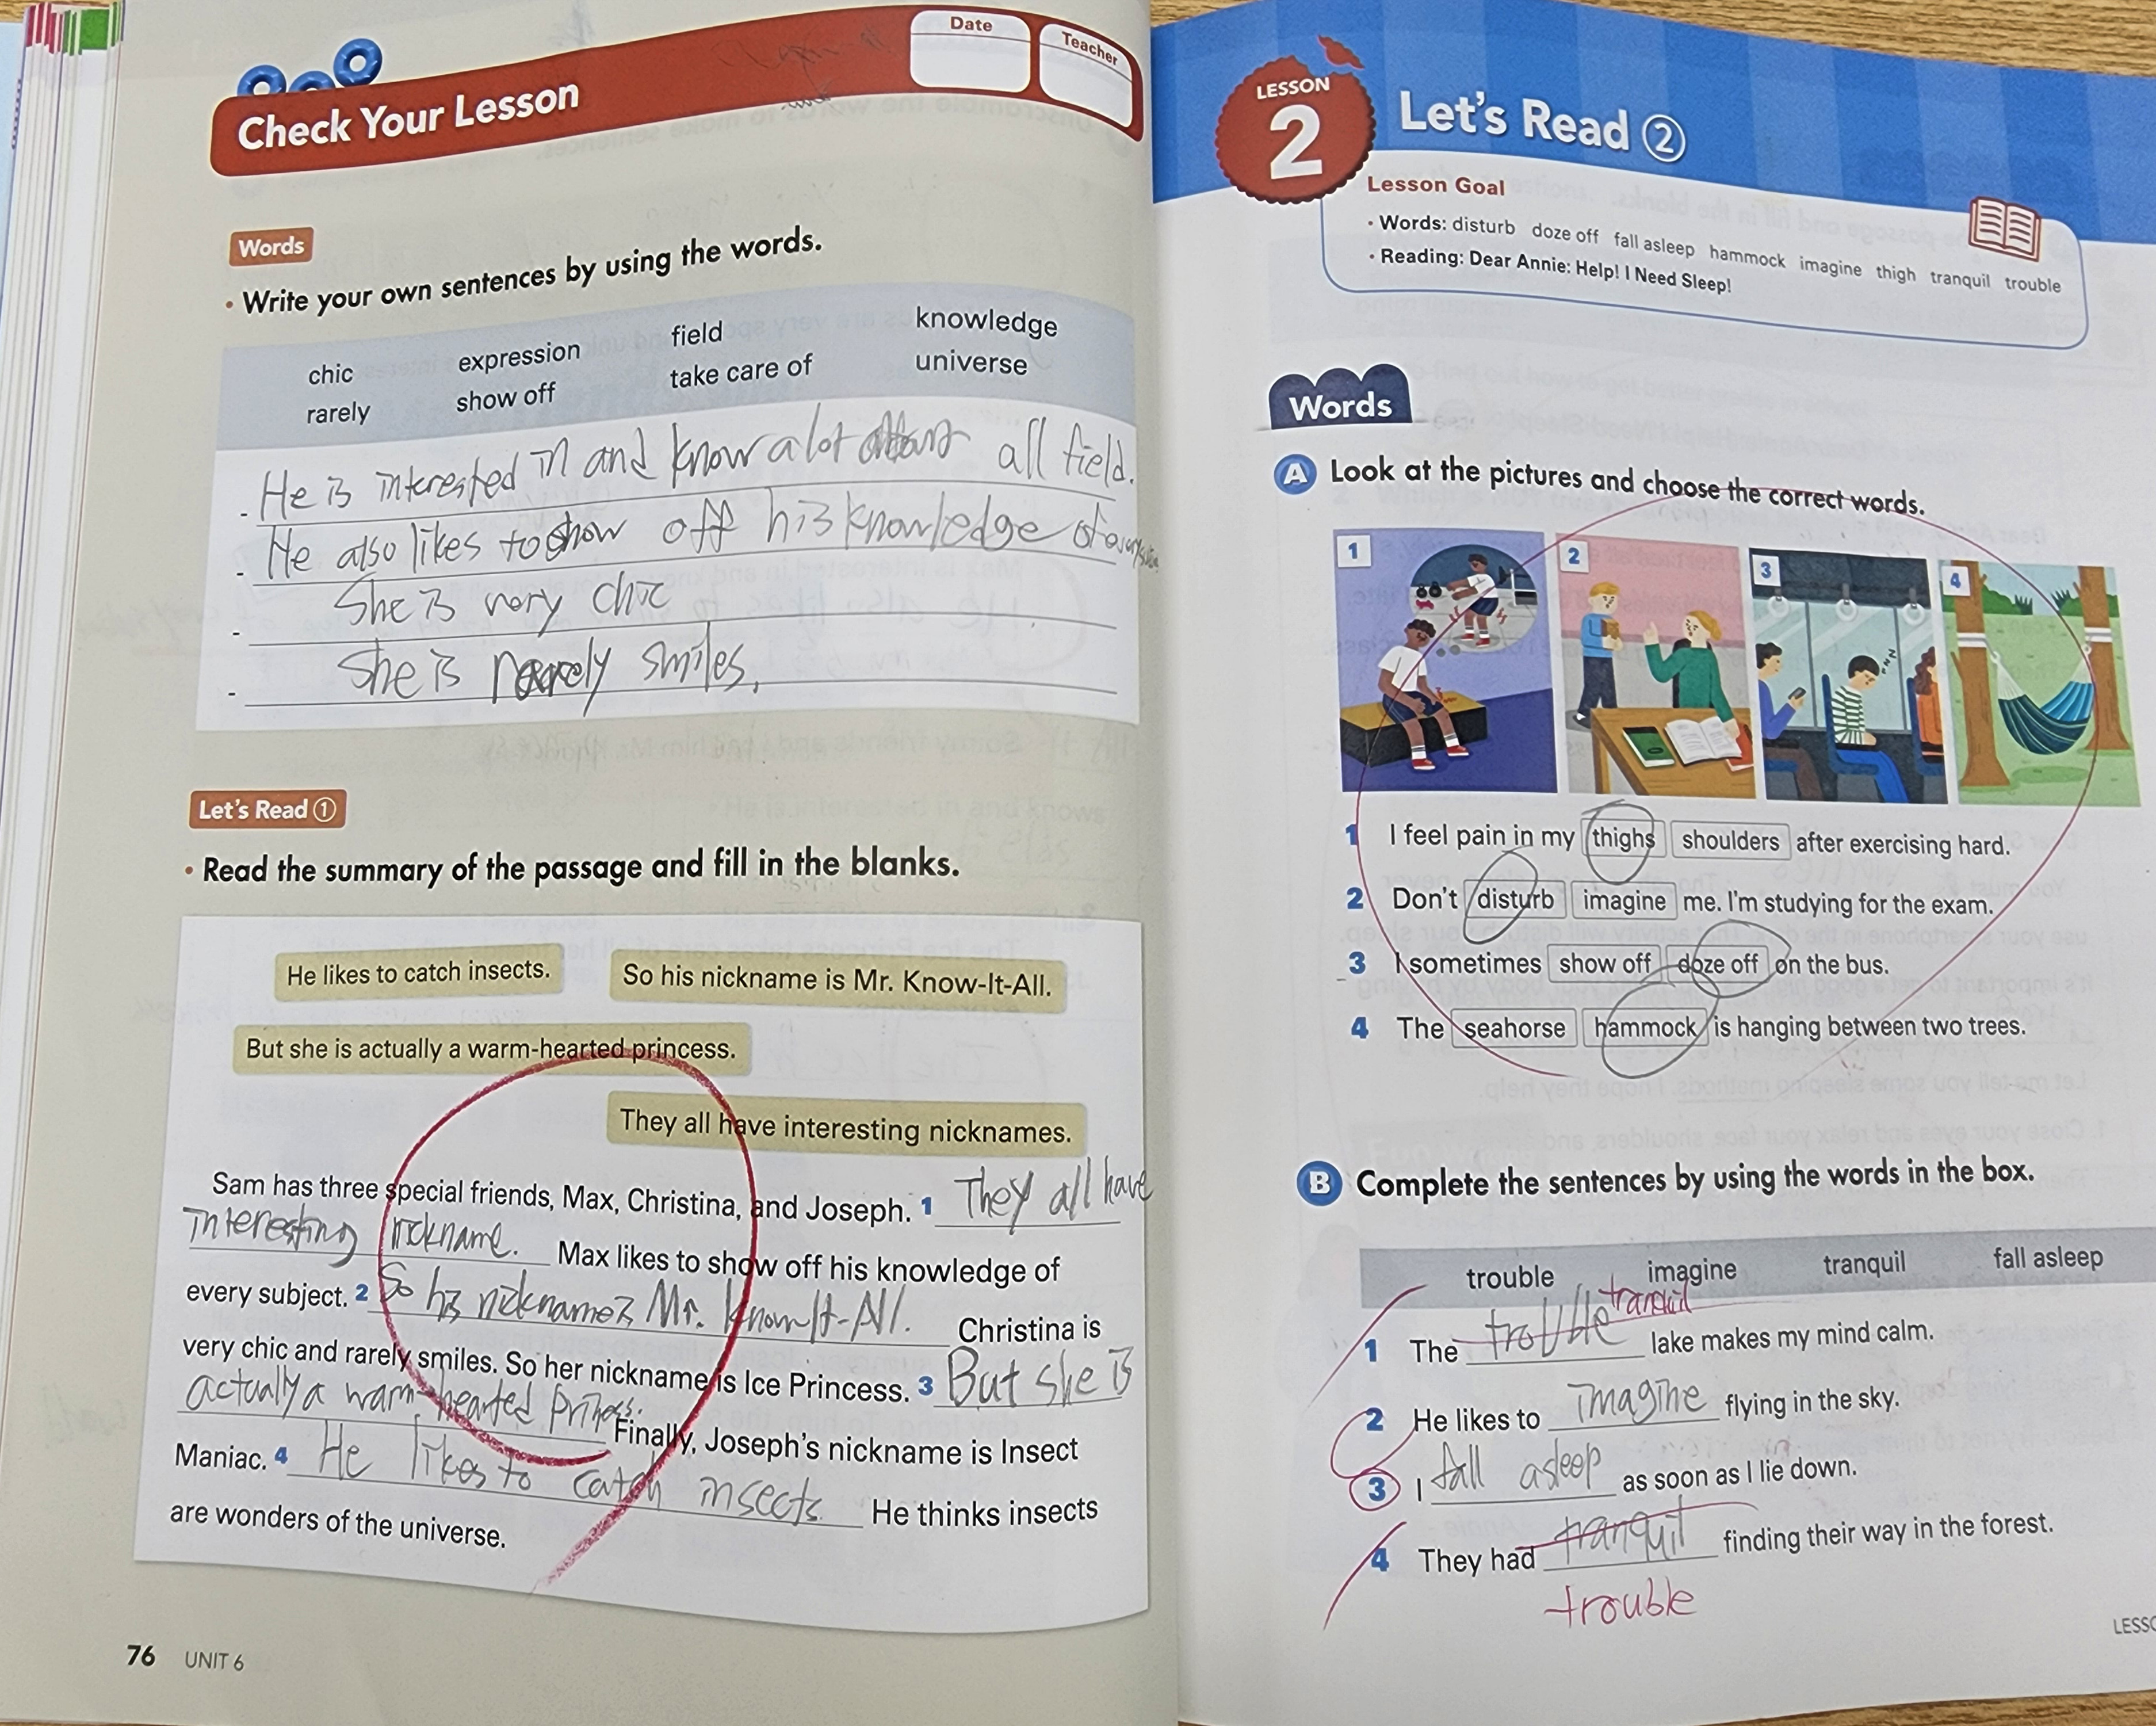 Check Your Lesson
Date
Teacher
Words
• Write your own sentences by using the words.
chic expression field knowledge
rarely show off take care of universe
- He is interested in and know a lot all field.
- He also likes to show off his knowledge of
- She is very chic
- She is rarely smiles.
Let's Read ①
• Read the summary of the passage and fill in the blanks.
He likes to catch insects. So his nickname is Mr. Know-It-All.
But she is actually a warm-hearted princess.
They all have interesting nicknames.
Sam has three special friends, Max, Christina, and Joseph. 1 They all have
interesting nickname. Max likes to show off his knowledge of
every subject. 2 So his nickname is Mr. Know It-All. Christina is
very chic and rarely smiles. So her nickname is Ice Princess. 3 But she is
actually a warm-hearted Finally, Joseph's nickname is Insect
Maniac. 4 He likes to catch insects. He thinks insects
are wonders of the universe.
76 UNIT 6
LESSON
2
Let's Read ②
Lesson Goal
• Words: disturb doze off fall asleep hammock imagine thigh tranquil trouble
• Reading: Dear Annie: Help! I Need Sleep!
Words
A Look at the pictures and choose the correct words.
1 2 3 4
zzz
1 I feel pain in my thighs shoulders after exercising hard.
2 Don't disturb imagine me. I'm studying for the exam.
3 I sometimes show off doze off on the bus.
4 The seahorse hammock is hanging between two trees.
B Complete the sentences by using the words in the box.
trouble imagine tranquil fall asleep
tranquil
1 The trouble lake makes my mind calm.
2 He likes to imagine flying in the sky.
3 I fall asleep as soon as I lie down.
4 They had tranquil finding their way in the forest.
trouble
LESSO